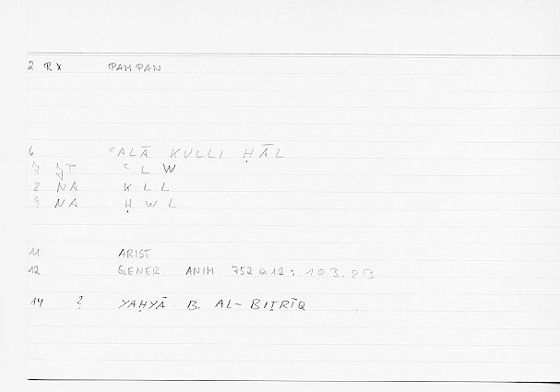 2 RX PAMPAN
6 ʿALĀ KULLI ḤĀL
7 ʿ L W
8 NA K L L
9 NA Ḥ W L
11 ARIST
12 GENER ANIM 752 a 12:
14 ? YAḤYĀ B. AL-BIṬRĪQ